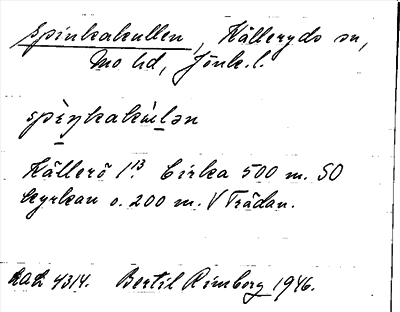 Spinkakullen, Källeryds sn,
Mo hd, Jönk. l.
spìŋkakúlən
Källerö 1¹³. Cirka 500 m. SO
kyrkan o. 200 m. V Trädan.
4314. Bertil Rimborg 1946.